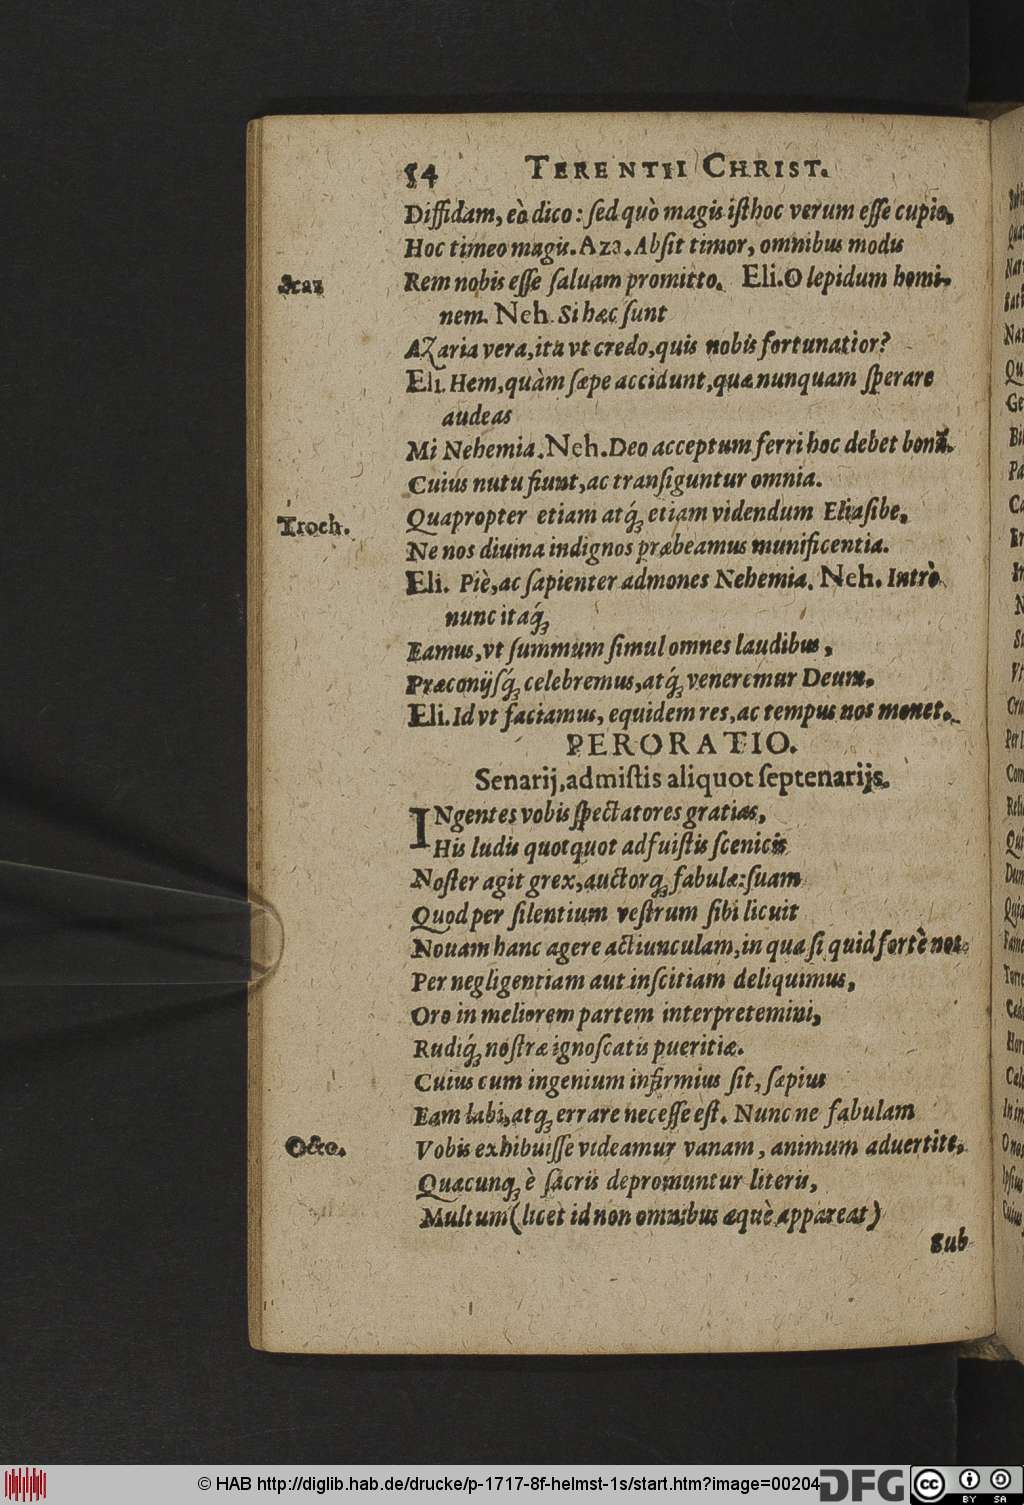 54 TERENTII CHRIST.
Diffidam, eò dico: ſed quò magis iſthoc verum eſſe cupio,
Hoc timeo magis. Aza. Abſit timor, omnibus modis
Scaz Rem nobis eſſe ſaluam promitto. Eli. O lepidum homi-
nem. Neh. Si hæc ſunt
Azaria vera, ita vt credo, quis nobis fortunatior?
Eli. Hem, quàm ſæpe accidunt, quæ nunquam ſperare
audeas
Mi Nehemia. Neh. Deo acceptum ferri hoc debet bonū.
Cuius nutu fiunt, ac tranſiguntur omnia.
Troch. Quapropter etiam atq́; etiam videndum Eliaſibe,
Ne nos diuina indignos præbeamus munificentia.
Eli. Piè, ac ſapienter admones Nehemia. Neh. Intrò
nunc itaq́;
Eamus, vt ſummum ſimul omnes laudibus,
Præconijſq́; celebremus, atq́; veneremur Deum.
Eli. Id vt faciamus, equidem res, ac tempus nos monet.
PERORATIO.
Senarij, admiſtis aliquot ſeptenarijs.
INgentes vobis ſpectatores gratias,
His ludis quotquot adfuiſtis ſcenicis
Noſter agit grex, auctorq; fabulæ: ſuam
Quod per ſilentium veſtrum ſibi licuit
Nouam hanc agere actiunculam, in qua ſi quid fortè nos
Per negligentiam aut inſcitiam deliquimus,
Oro in meliorem partem interpretemini,
Rudiq́; noſtræ ignoſcatis pueritiæ.
Cuius cum ingenium infirmius ſit, ſæpius
Eam labi, atq; errare neceſſe eſt. Nunc ne fabulam
Octo. Vobis exhibuiſſe videamur vanam, animum aduertite,
Quacunq; è ſacris depromuntur literis,
Multum (licet id non omnibus æquè appareat)
Sub
© HAB http://diglib.hab.de/drucke/p-1717-8f-helmst-1s/start.htm?image=00204
DFG
cc BY SA